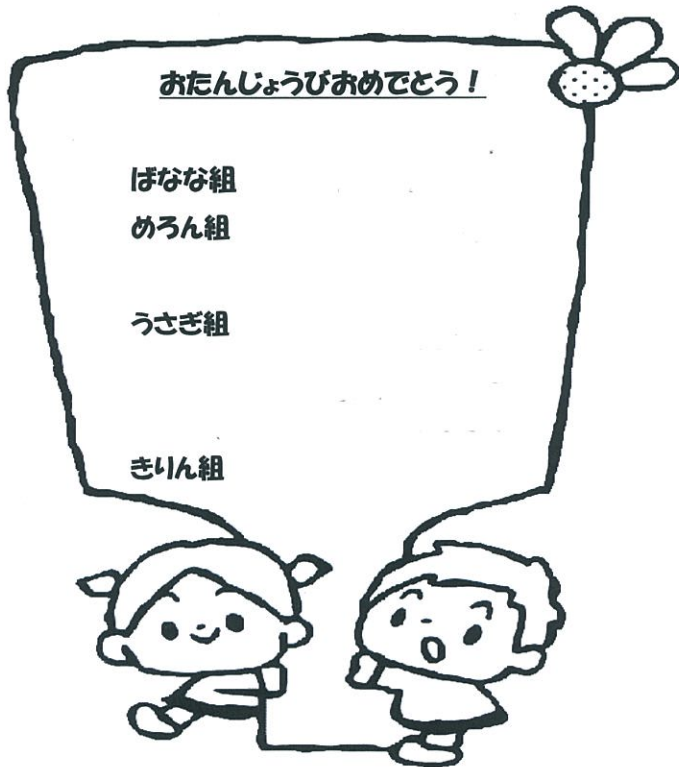 おたんじょうびおめでとう！
ばなな組
めろん組
うさぎ組
きりん組